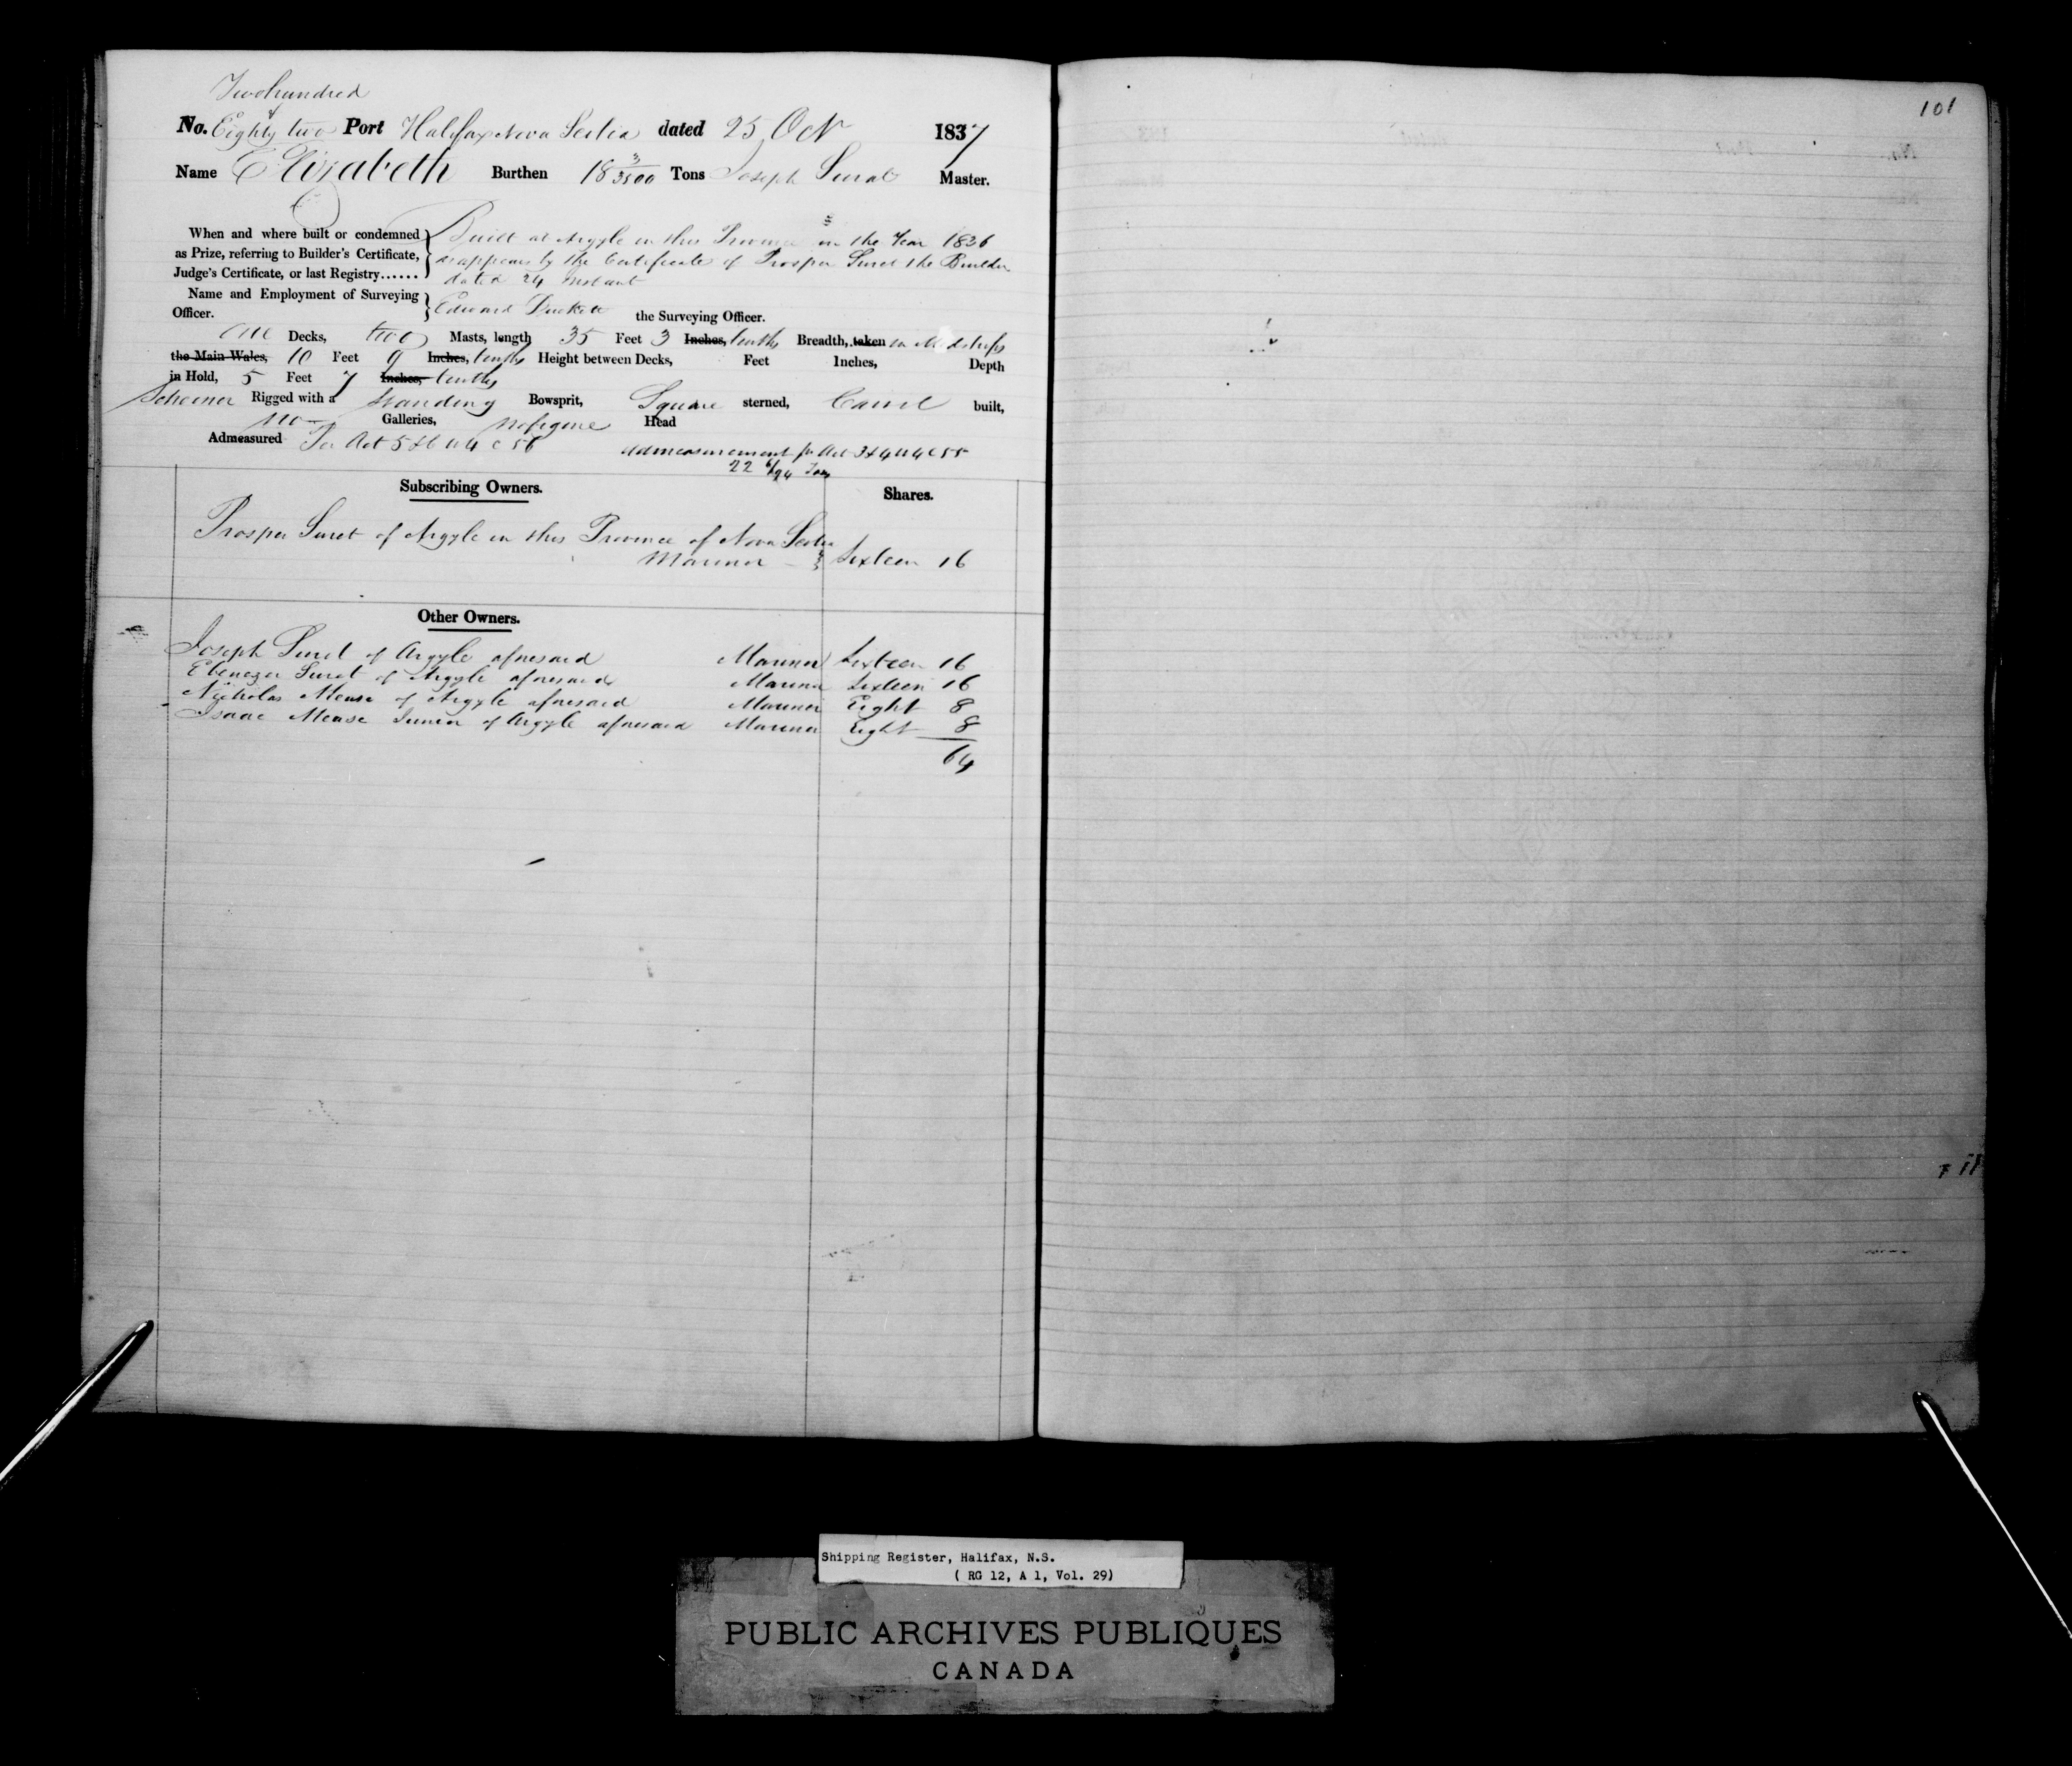 Two hundred
No. Eighty & two Port Halifax Nova Scotia dated 25 Oct 1837
Name Elizabeth Burthen 18 3/3500 Tons Joseph Surat Master.
When and where built or condemned as Prize, referring to Builder's Certificate, Judge's Certificate, or last Registry......
Built at Argyle in this Province in the Year 1836
as appears by the Certificate of Prosper Suret the Builder
dated 24 Instant
Name and Employment of Surveying Officer. Edward the Surveying Officer.
One Decks, two Masts, length 35 Feet 3 Inches, tenths Breadth, taken in Midships
the Main Wales, 10 Feet 9 Inches, tenths Height between Decks, Feet Inches, Depth
in Hold, 5 Feet 7 Inches, tenths
Schooner Rigged with a Standing Bowsprit, Square sterned, Carvel built,
No Galleries, no figure Head
Admeasured Per Act 5 & 6 W 4 C 56 admeasurement pr Act 3 & 4 W 4 C 55
22 6/94 Tons
Subscribing Owners. Shares.
Prosper Suret of Argyle in this Province of Nova Scotia
Mariner Sixteen 16
Other Owners.
Joseph Suret of Argyle aforesaid Mariner Sixteen 16
Ebenezer Suret of Argyle aforesaid Mariner Sixteen 16
Nicholas Meuse of Argyle aforesaid Mariner Eight 8
Isaac Meuse Junior of Argyle aforesaid Mariner Eight 8
64
101
Shipping Register, Halifax, N.S.
( RG 12, A 1, Vol. 29)
PUBLIC ARCHIVES PUBLIQUES
CANADA